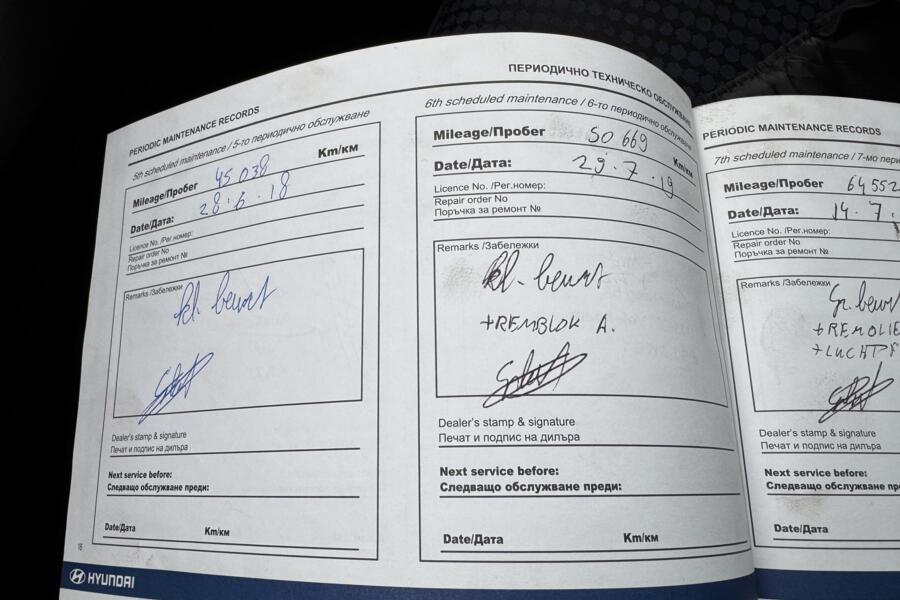 PERIODIC MAINTENANCE RECORDS
5th scheduled maintenance / 5-то периодично обслужване
Mileage/Пробег 45 038 Km/км
Date/Дата: 28.6.18
Licence No. /Рег.номер:
Repair order No
Поръчка за ремонт №
Remarks /Забележки
kl. beurt
Dealer's stamp & signature
Печат и подпис на дилъра
Next service before:
Следващо обслужване преди:
Date/Дата Km/км
16
HYUNDAI
ПЕРИОДИЧНО ТЕХНИЧЕСКО ОБСЛУЖВАНЕ
6th scheduled maintenance / 6-то периодично обслужване
Mileage/Пробег 50 669 Km/км
Date/Дата: 29.7.19
Licence No. /Рег.номер:
Repair order No
Поръчка за ремонт №
Remarks /Забележки
kl. beurt
+REMBLOK A.
Dealer's stamp & signature
Печат и подпис на дилъра
Next service before:
Следващо обслужване преди:
Date/Дата Km/км
PERIODIC MAINTENANCE RECORDS
7th scheduled maintenance / 7-мо пери
Mileage/Пробег 64 552
Date/Дата: 14.7.
Licence No. /Рег.номер:
Repair order No
Поръчка за ремонт №
Remarks /Забележки
Gr. beurt
+REMOLIE
+LUCHTF
Dealer's stamp & signature
Печат и подпис на дилъра
Next service before:
Следващо обслужване пре
Date/Дата